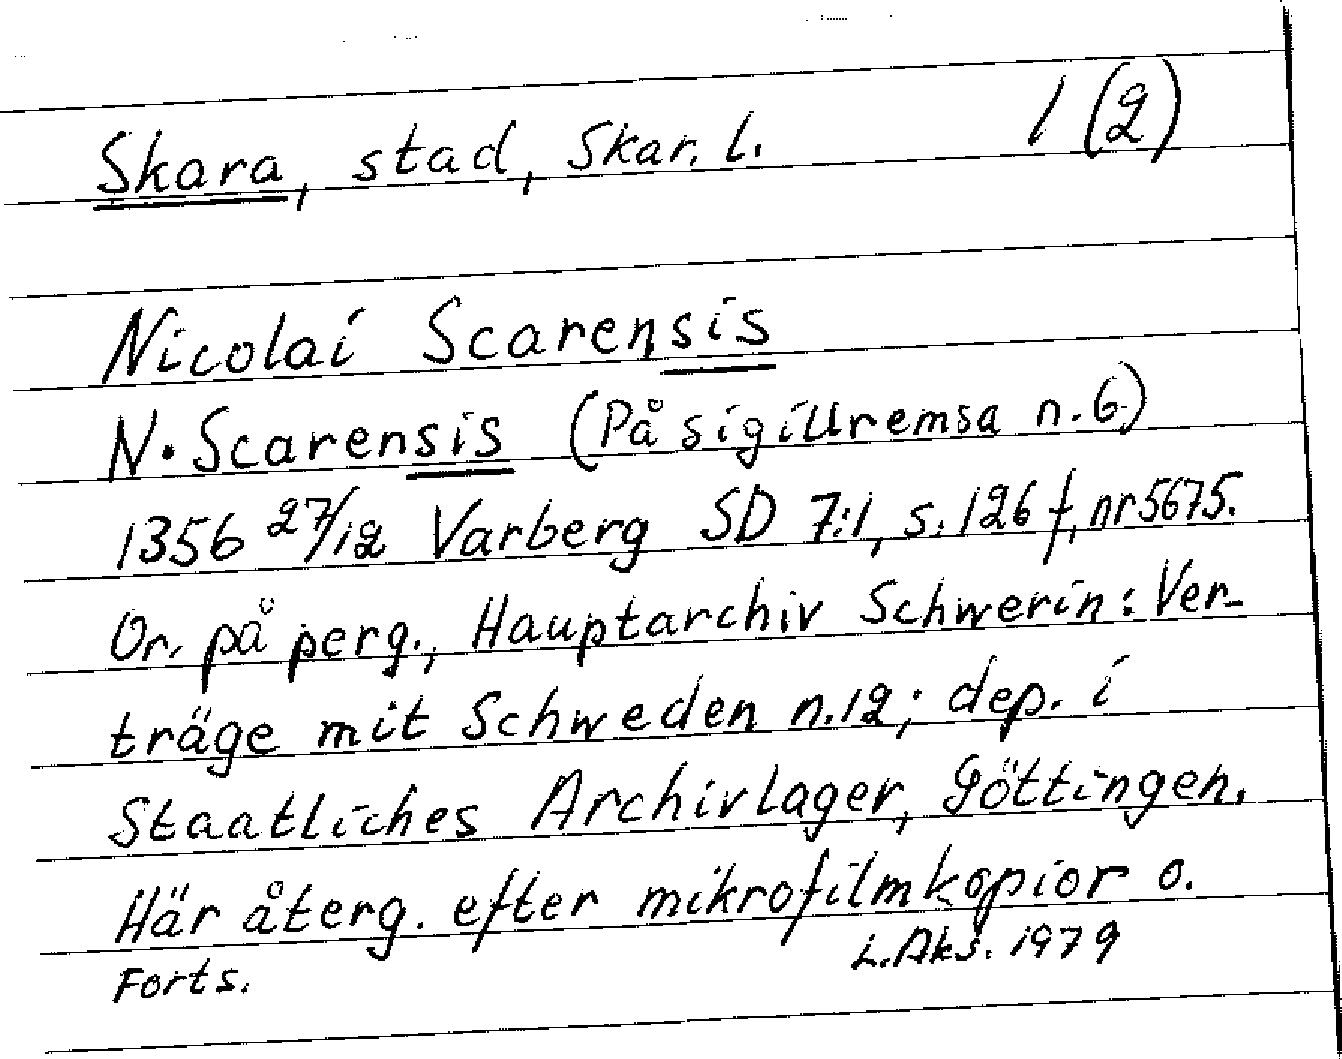 Skara, stad, Skar. l. 1 (2)
Nicolai Scarensis
N. Scarensis (På sigillremsa n. 6)
1356 27/12 Varberg SD 7:1, s. 126 f, nr 5675.
Or. på perg., Hauptarchiv Schwerin: Ver-
träge mit Schweden n. 12; dep. i
Staatliches Archivlager, Göttingen.
Här återg. efter mikrofilmkopior o.
Forts. L. Aks. 1979